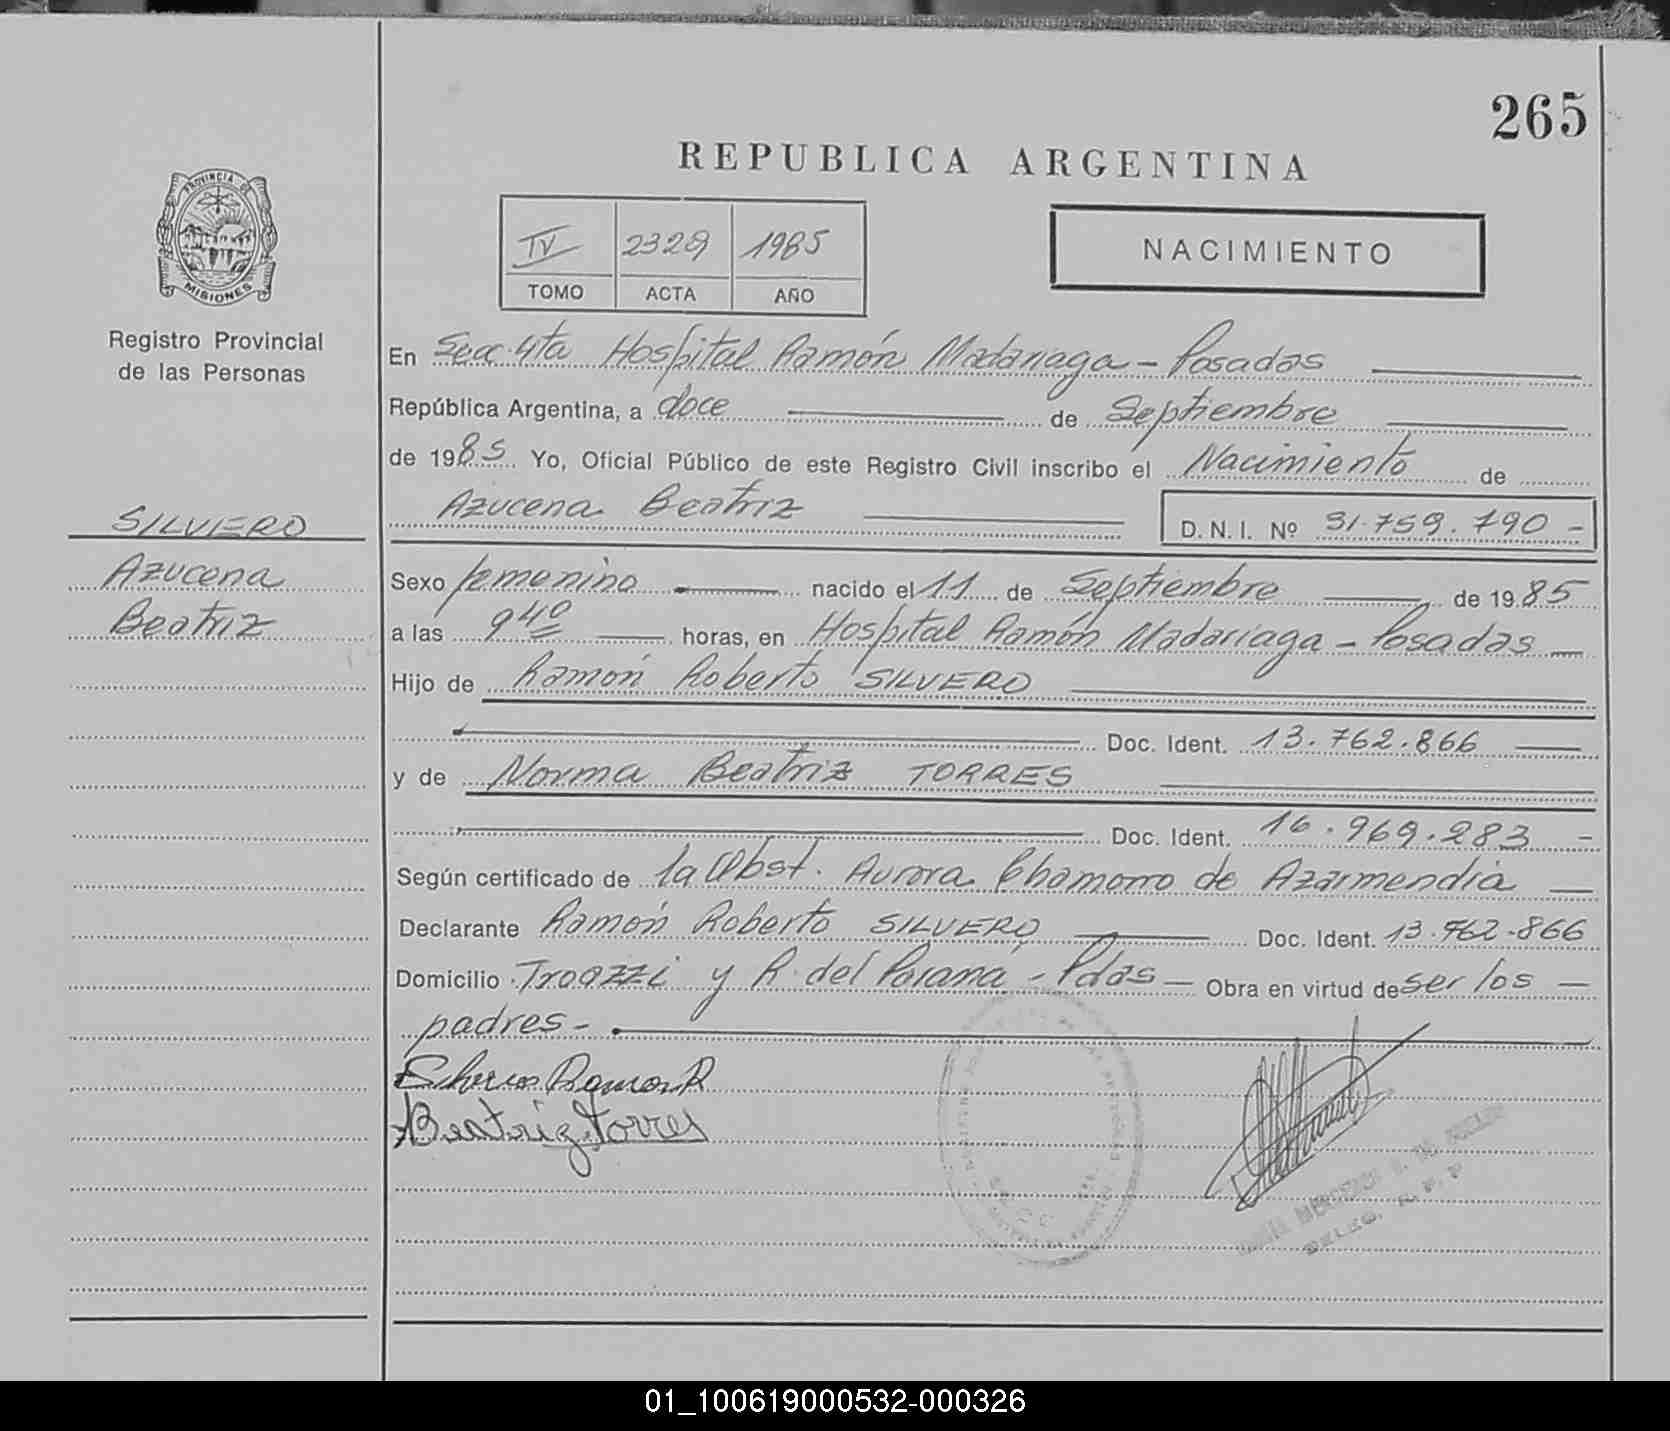 265
REPUBLICA ARGENTINA
PROVINCIA DE
MISIONES
Registro Provincial
de las Personas
IV 2329 1985
TOMO ACTA AÑO
NACIMIENTO
En Secc. 4ta Hospital Ramón Madariaga - Posadas
República Argentina, a doce de Septiembre
de 1985 Yo, Oficial Público de este Registro Civil inscribo el Nacimiento de
Azucena Beatriz D.N.I. Nº 31.759.790 -
SILVERO
Azucena
Beatriz
Sexo femenino nacido el 11 de Septiembre de 1985
a las 9 40 horas, en Hospital Ramón Madariaga - Posadas
Hijo de Ramón Roberto SILVERO
Doc. Ident. 13.762.866
y de Norma Beatriz TORRES
Doc. Ident. 16.969.283 -
Según certificado de la Obst. Aurora Chamorro de Azarmendia
Declarante Ramón Roberto SILVERO Doc. Ident. 13.762.866
Domicilio y R. del Paraná - Pdas - Obra en virtud de ser los
padres -
Silvero Ramon R
Beatriz Torres
01_100619000532-000326